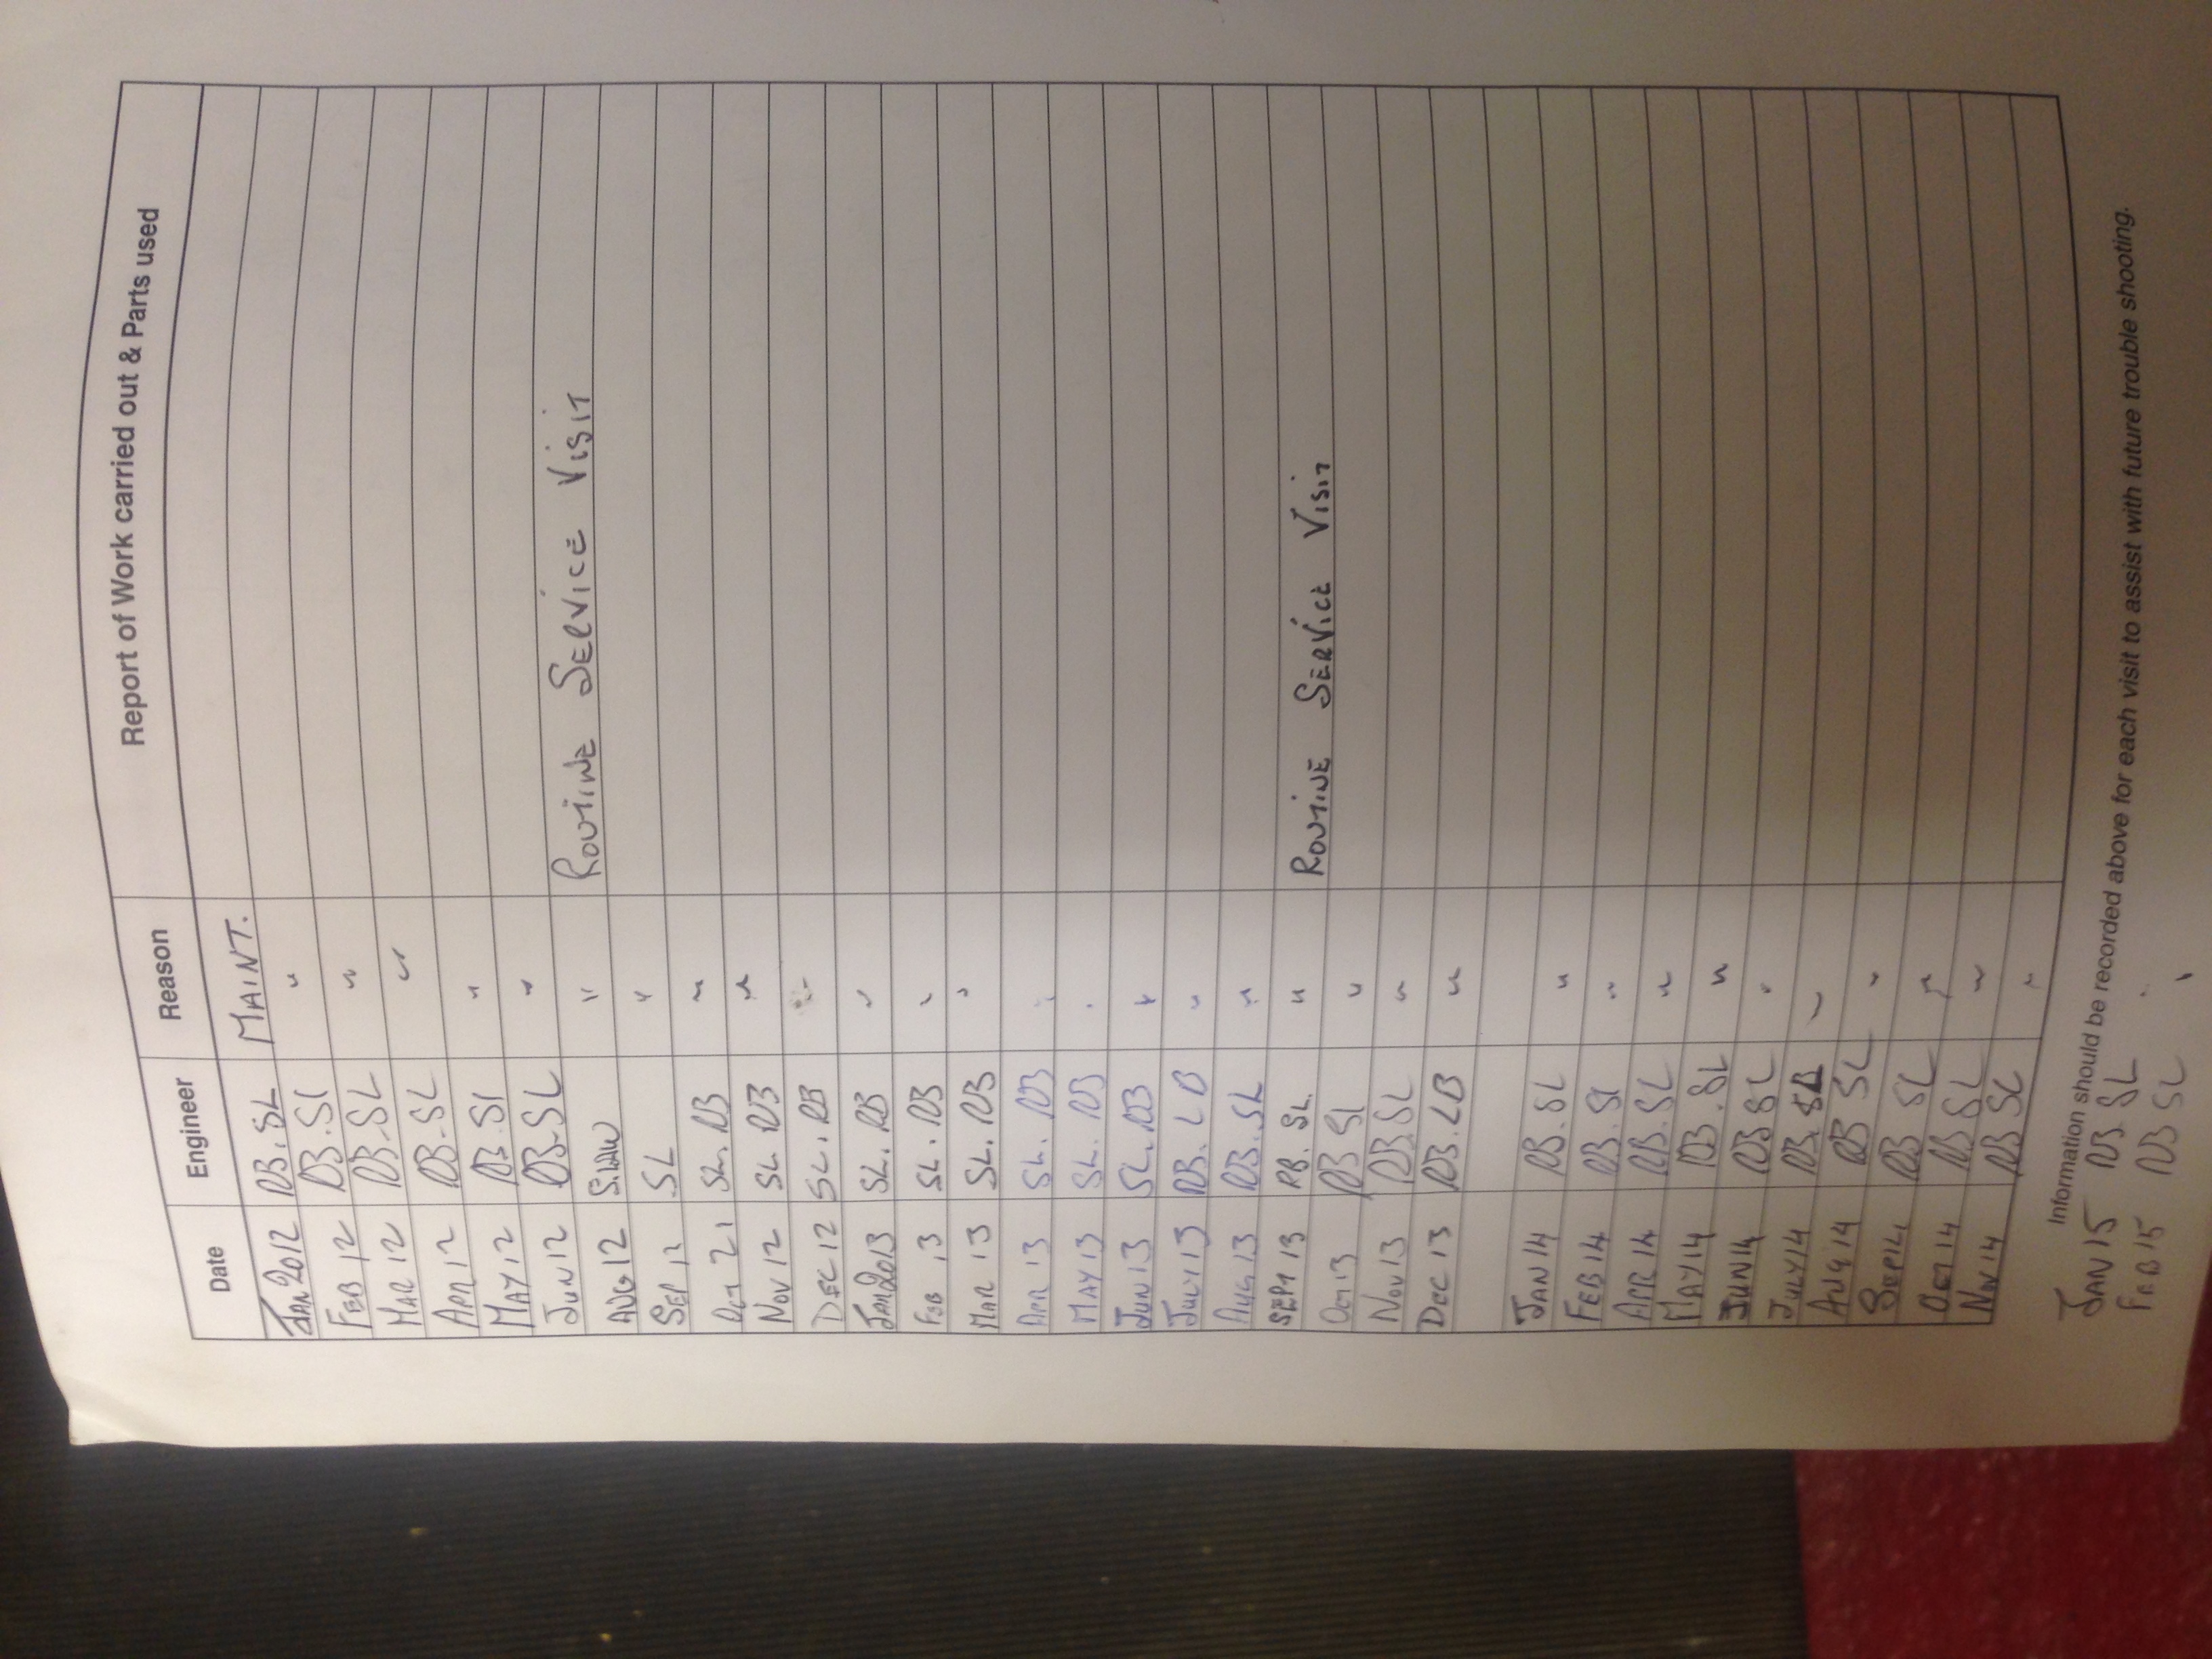 Date Engineer Reason Report of Work carried out & Parts used
JAN 2012 RB.SL MAINT.
FEB 12 RB.SL "
MAR 12 RB.SL "
APR 12 RB.SL "
MAY 12 RB.SL "
JUN 12 RB.SL "
AUG 12 S.LAW " ROUTINE SERVICE VISIT
SEP 12 SL "
OCT 21 SL.RB "
NOV 12 SL.RB "
DEC 12 SL.RB "
JAN 2013 SL.RB "
FEB 13 SL.RB "
MAR 13 SL.RB "
APR 13 SL.RB "
MAY 13 SL.RB "
JUN 13 SL.RB "
JULY 13 RB.LB "
AUG 13 RB.SL "
SEPT 13 RB.SL. " ROUTINE SERVICE VISIT
OCT 13 RB SL "
NOV 13 RB.SL "
DEC 13 RB.LB "
JAN 14 RB.SL "
FEB 14 RB.SL "
APR 14 RB.SL "
MAY 14 RB.SL "
JUN 14 RB SL "
JULY 14 RB. "
AUG 14 RB SL "
SEP 14 RB SL "
OCT 14 RB SL "
NOV 14 RB SL "
Information should be recorded above for each visit to assist with future trouble shooting.
JAN 15 RB.SL "
FEB 15 RB SL "